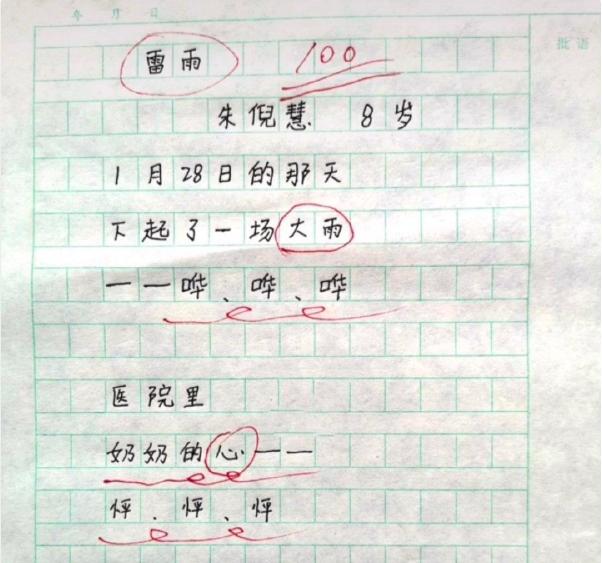 年 月 日
批语
雷雨 100
朱倪慧 8岁
1月28日的那天
下起了一场大雨
——哗、哗、哗
医院里
奶奶的心——
怦、怦、怦